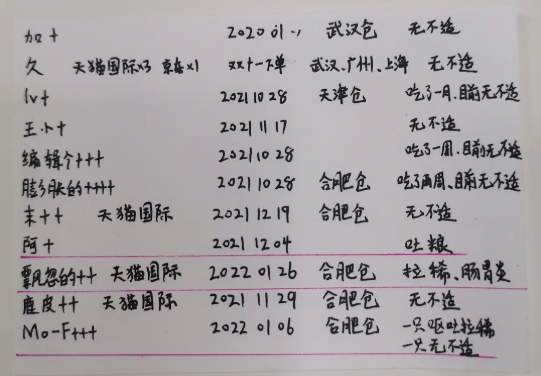 加+ 2020 01.. 武汉仓 无不适
久 天猫国际x3 京东x1 双十一下单 武汉、广州、上海 无不适
lv+ 2021 10 28 天津仓 吃了一月、目前无不适
王小+ 2021 11 17 无不适
编辑个+++ 2021 10 28 吃了一周、目前无不适
膨胀的++++ 2021 10 28 合肥仓 吃了两周、目前无不适
末++ 天猫国际 2021 12 19 合肥仓 无不适
阿+ 2021 12 04 吐粮
飘忽的++ 天猫国际 2022 01 26 合肥仓 拉稀、肠胃炎
鹿皮++ 天猫国际 2021 11 29 合肥仓 无不适
Mo-F+++ 2022 01 06 合肥仓 一只呕吐拉稀
一只无不适